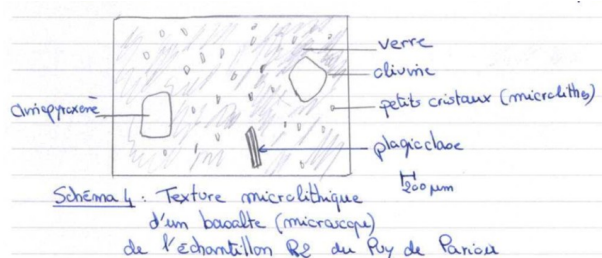 verre
olivine
petits cristaux (microlithes)
clinopyroxène
plagioclase
200 µm
Schéma 4 : Texture microlithique
d'un basalte (microscope)
de l'échantillon R2 du Puy de Pariou